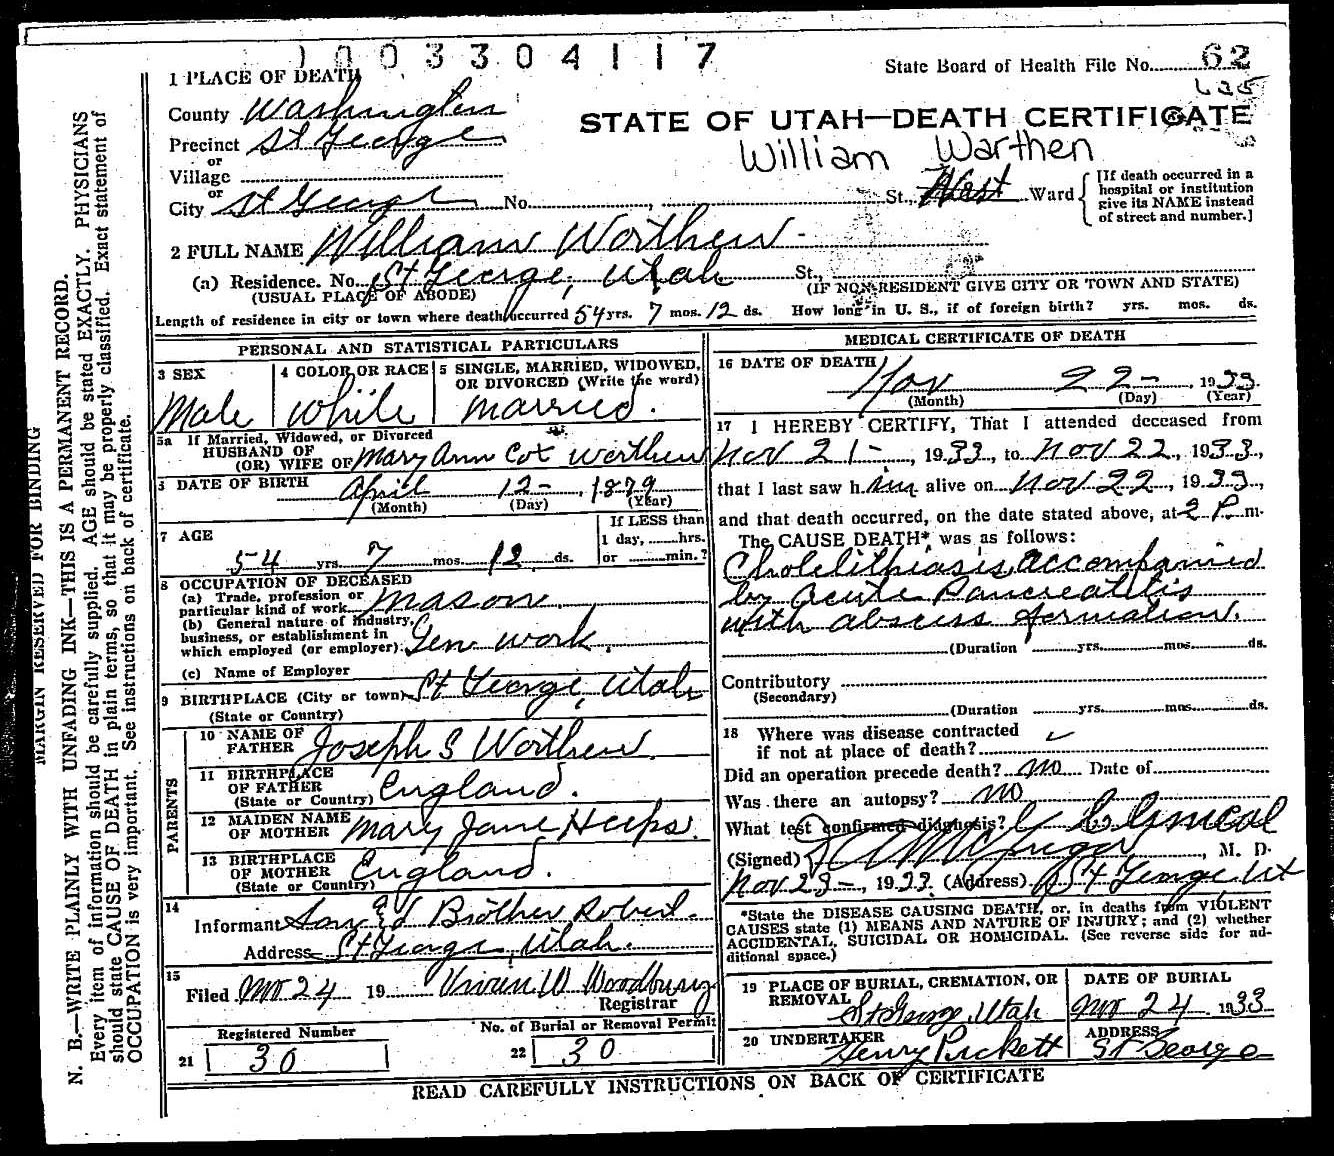 1003304117
State Board of Health File No. 62
635
1 PLACE OF DEATH
County Washington
STATE OF UTAH—DEATH CERTIFICATE
Precinct St George
William Warthen
or
Village
or
City St George No. , St. West Ward
[If death occurred in a hospital or institution give its NAME instead of street and number.]
2 FULL NAME William Worthen -
(a) Residence. No. St George, Utah St.,
(USUAL PLACE OF ABODE) (IF NON-RESIDENT GIVE CITY OR TOWN AND STATE)
Length of residence in city or town where death occurred 54 yrs. 7 mos. 12 ds. How long in U. S., if of foreign birth? yrs. mos. ds.
PERSONAL AND STATISTICAL PARTICULARS
3 SEX Male
4 COLOR OR RACE White
5 SINGLE, MARRIED, WIDOWED, OR DIVORCED (Write the word) married.
5a If Married, Widowed, or Divorced
HUSBAND OF
(OR) WIFE OF Mary Ann Cox Worthen
DATE OF BIRTH April 12- , 1879
(Month) (Day) (Year)
7 AGE 54 yrs. 7 mos. 12 ds.
If LESS than 1 day, hrs. or min.?
8 OCCUPATION OF DECEASED
(a) Trade, profession or particular kind of work mason
(b) General nature of industry, business, or establishment in which employed (or employer) Gen work.
(c) Name of Employer
9 BIRTHPLACE (City or town) St George, Utah
(State or Country)
PARENTS
10 NAME OF FATHER Joseph S Worthen.
11 BIRTHPLACE OF FATHER (State or Country) England.
12 MAIDEN NAME OF MOTHER Mary Jane Heeps.
13 BIRTHPLACE OF MOTHER (State or Country) England.
14 Informant Brother Robert.
Address St George, Utah.
15 Filed Nov 24 19 Vivian W Woodbury
Registrar
Registered Number
21 30
No. of Burial or Removal Permit
22 30
MEDICAL CERTIFICATE OF DEATH
16 DATE OF DEATH Nov 22- , 1933
(Month) (Day) (Year)
17 I HEREBY CERTIFY, That I attended deceased from
Nov 21-, 1933, to Nov 22, 1933,
that I last saw him alive on Nov 22, 1933,
and that death occurred, on the date stated above, at 2 P m.
The CAUSE DEATH* was as follows:
Cholelithiasis, accompanied
by acute Pancreatitis
with abscess formation.
(Duration yrs. mos. ds.
Contributory
(Secondary)
(Duration yrs. mos. ds.
18 Where was disease contracted
if not at place of death?
Did an operation precede death? no Date of
Was there an autopsy? no
What test confirmed diagnosis? Clinical
(Signed) McGregor, M. D.
Nov 23-, 1933 (Address) St George, Ut
*State the DISEASE CAUSING DEATH, or, in deaths from VIOLENT
CAUSES state (1) MEANS AND NATURE OF INJURY; and (2) whether
ACCIDENTAL, SUICIDAL OR HOMICIDAL. (See reverse side for ad-
ditional space.)
19 PLACE OF BURIAL, CREMATION, OR REMOVAL St George, Utah
DATE OF BURIAL Nov 24 1933
20 UNDERTAKER Henry Pickett
ADDRESS St George
READ CAREFULLY INSTRUCTIONS ON BACK OF CERTIFICATE
MARGIN RESERVED FOR BINDING
N. B.—WRITE PLAINLY WITH UNFADING INK—THIS IS A PERMANENT RECORD.
Every item of information should be carefully supplied. AGE should be stated EXACTLY. PHYSICIANS
should state CAUSE OF DEATH in plain terms, so that it may be properly classified. Exact statement of
OCCUPATION is very important. See instructions on back of certificate.